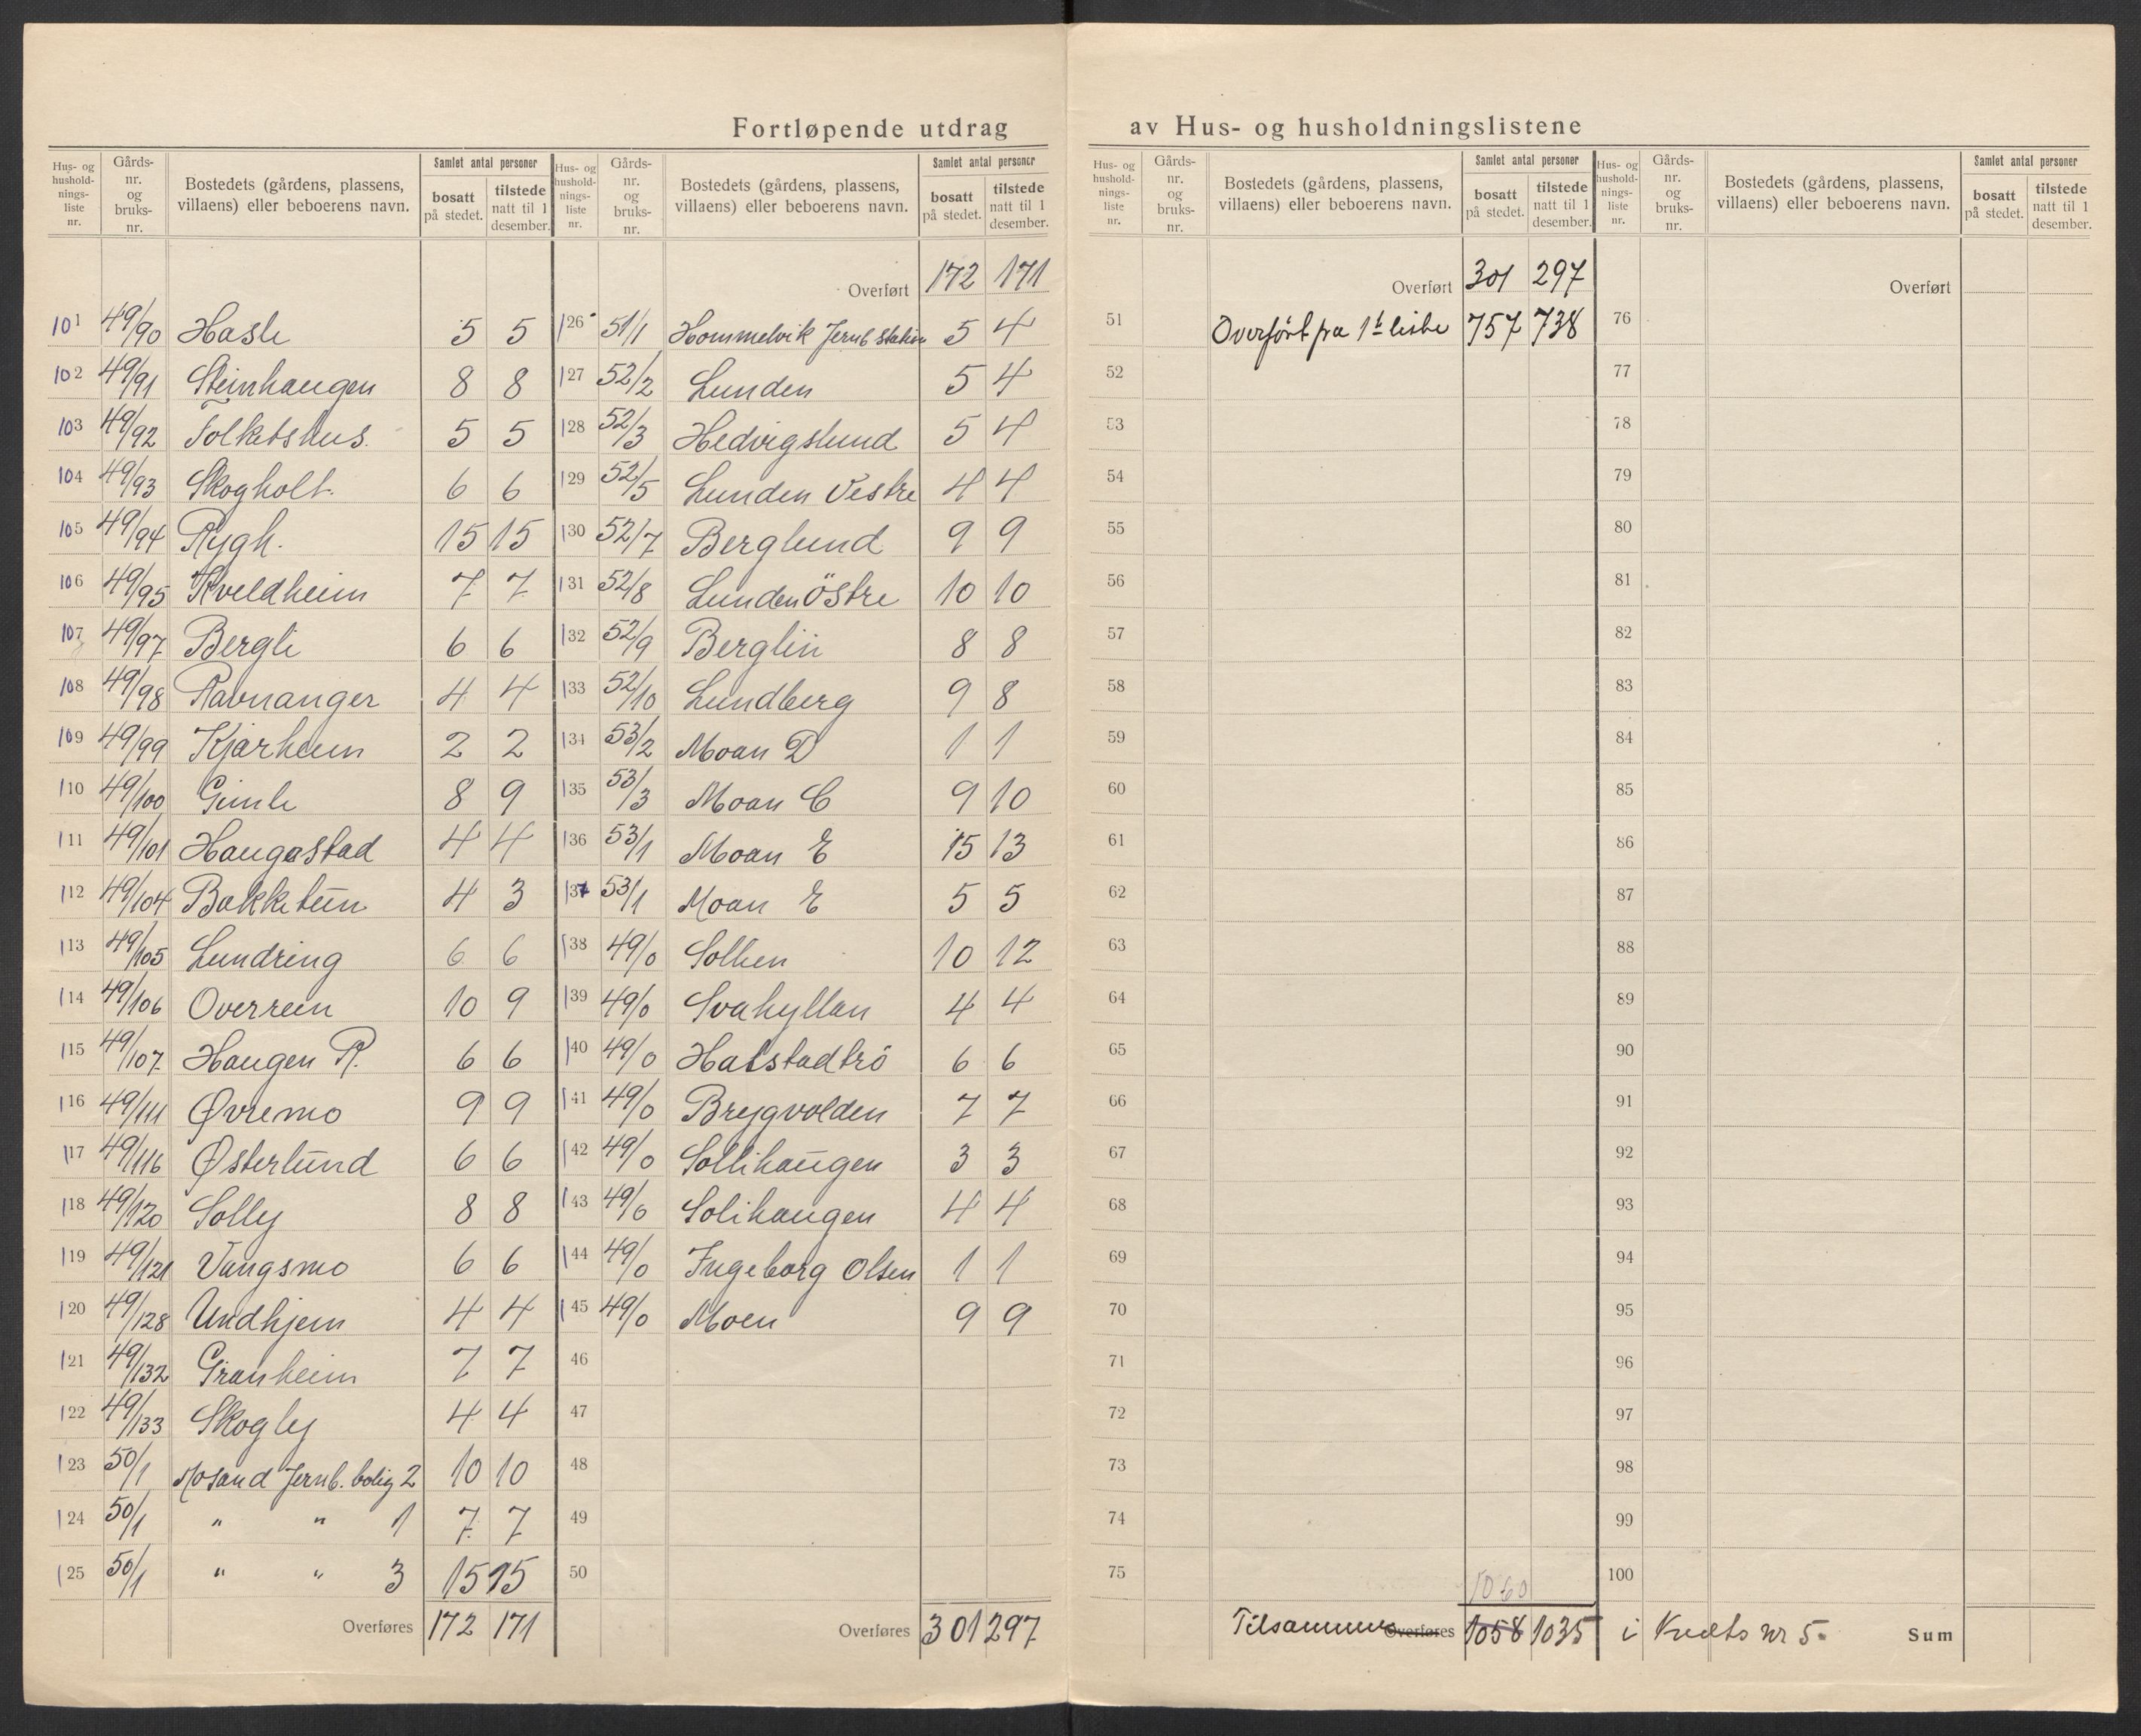 Fortløpende utdrag av Hus- og husholdningslistene
Hus- og hushold- nings- liste nr. | Gårds- nr. og bruks- nr. | Bostedets (gårdens, plassens, villaens) eller beboerens navn. | Samlet antal personer | bosatt på stedet. | tilstede natt til 1 desember.
101 49/90 Hasle 5 5
102 49/91 Steinhaugen 8 8
103 49/92 Folketshus. 5 5
104 49/93 Skogholt. 6 6
105 49/94 Rygh. 15 15
106 49/95 Kveldheim 7 7
107 49/97 Bergli 6 6
108 49/98 Ravnanger 4 4
109 49/99 Kjærheim 2 2
110 49/100 Gimle 8 9
111 49/101 Haugastad 4 4
112 49/104 Bakketun 4 3
113 49/105 Lundring 6 6
114 49/106 Overrein 10 9
115 49/107 Haugen R. 6 6
116 49/111 Øvremo 9 9
117 49/116 Østerlund 6 6
118 49/120 Solly 8 8
119 49/121 Vangsmo 6 6
120 49/128 Undhjem 4 4
121 49/132 Granheim 7 7
122 49/133 Skogly 4 4
123 50/1 Mosand Jernb. bolig 2 10 10
124 50/1 " " 1 7 7
125 50/1 " " 3 15 15
Overføres 172 171
Hus- og hushold- nings- liste nr. | Gårds- nr. og bruks- nr. | Bostedets (gårdens, plassens, villaens) eller beboerens navn. | Samlet antal personer | bosatt på stedet. | tilstede natt til 1 desember.
Overført 172 171
126 51/1 Hommelvik Jernb station 5 4
127 52/2 Lunden 5 4
128 52/3 Hedvigslund 5 4
129 52/5 Lunden Vestre 4 4
130 52/7 Berglund 9 9
131 52/8 Lunden Östre 10 10
132 52/9 Berglin 8 8
133 52/10 Lundberg 9 8
134 53/2 Moan D 1 1
135 53/3 Moan C 9 10
136 53/1 Moan E 15 13
137 53/1 Moan E 5 5
138 49/0 Solhen 10 12
139 49/0 Svahyllan 4 4
140 49/0 Halstadtrö 6 6
141 49/0 Brygvolden 7 7
142 49/0 Sollihaugen 3 3
143 49/0 Solihaugen 4 4
144 49/0 Ingeborg Olsen 1 1
145 49/0 Moen 9 9
46
47
48
49
50
Overføres 301 297
Hus- og hushold- nings- liste nr. | Gårds- nr. og bruks- nr. | Bostedets (gårdens, plassens, villaens) eller beboerens navn. | Samlet antal personer | bosatt på stedet. | tilstede natt til 1 desember.
Overført 301 297
51 Overført fra 1ste liste 757 738
52
53
54
55
56
57
58
59
60
61
62
63
64
65
66
67
68
69
70
71
72
73
74
75
1060
Tilsammen Overføres 1058 1035 i Kreds nr 5.
Hus- og hushold- nings- liste nr. | Gårds- nr. og bruks- nr. | Bostedets (gårdens, plassens, villaens) eller beboerens navn. | Samlet antal personer | bosatt på stedet. | tilstede natt til 1 desember.
Overført
76
77
78
79
80
81
82
83
84
85
86
87
88
89
90
91
92
93
94
95
96
97
98
99
100
Sum